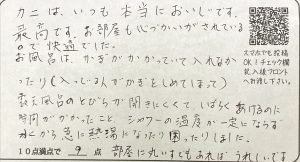 カニは、いつも本当においしいです。
最高です。お部屋も心づかいがされている
ので快適でした。
お風呂は、かぎがかかっていて入れなか
ったり(入っている人がかぎをしめてしまって)
露天風呂のとびらが開きにくくて、しばらくあけるのに
時間がかかったこと、シャワーの温度が一定にならず
水から急に熱湯になったり困ったりしました。
10点満点で 9 点 部屋に丸いすもあればうれしいです
スマホでも投稿
OK!チェック欄
記入後フロント
へお渡し下さい。